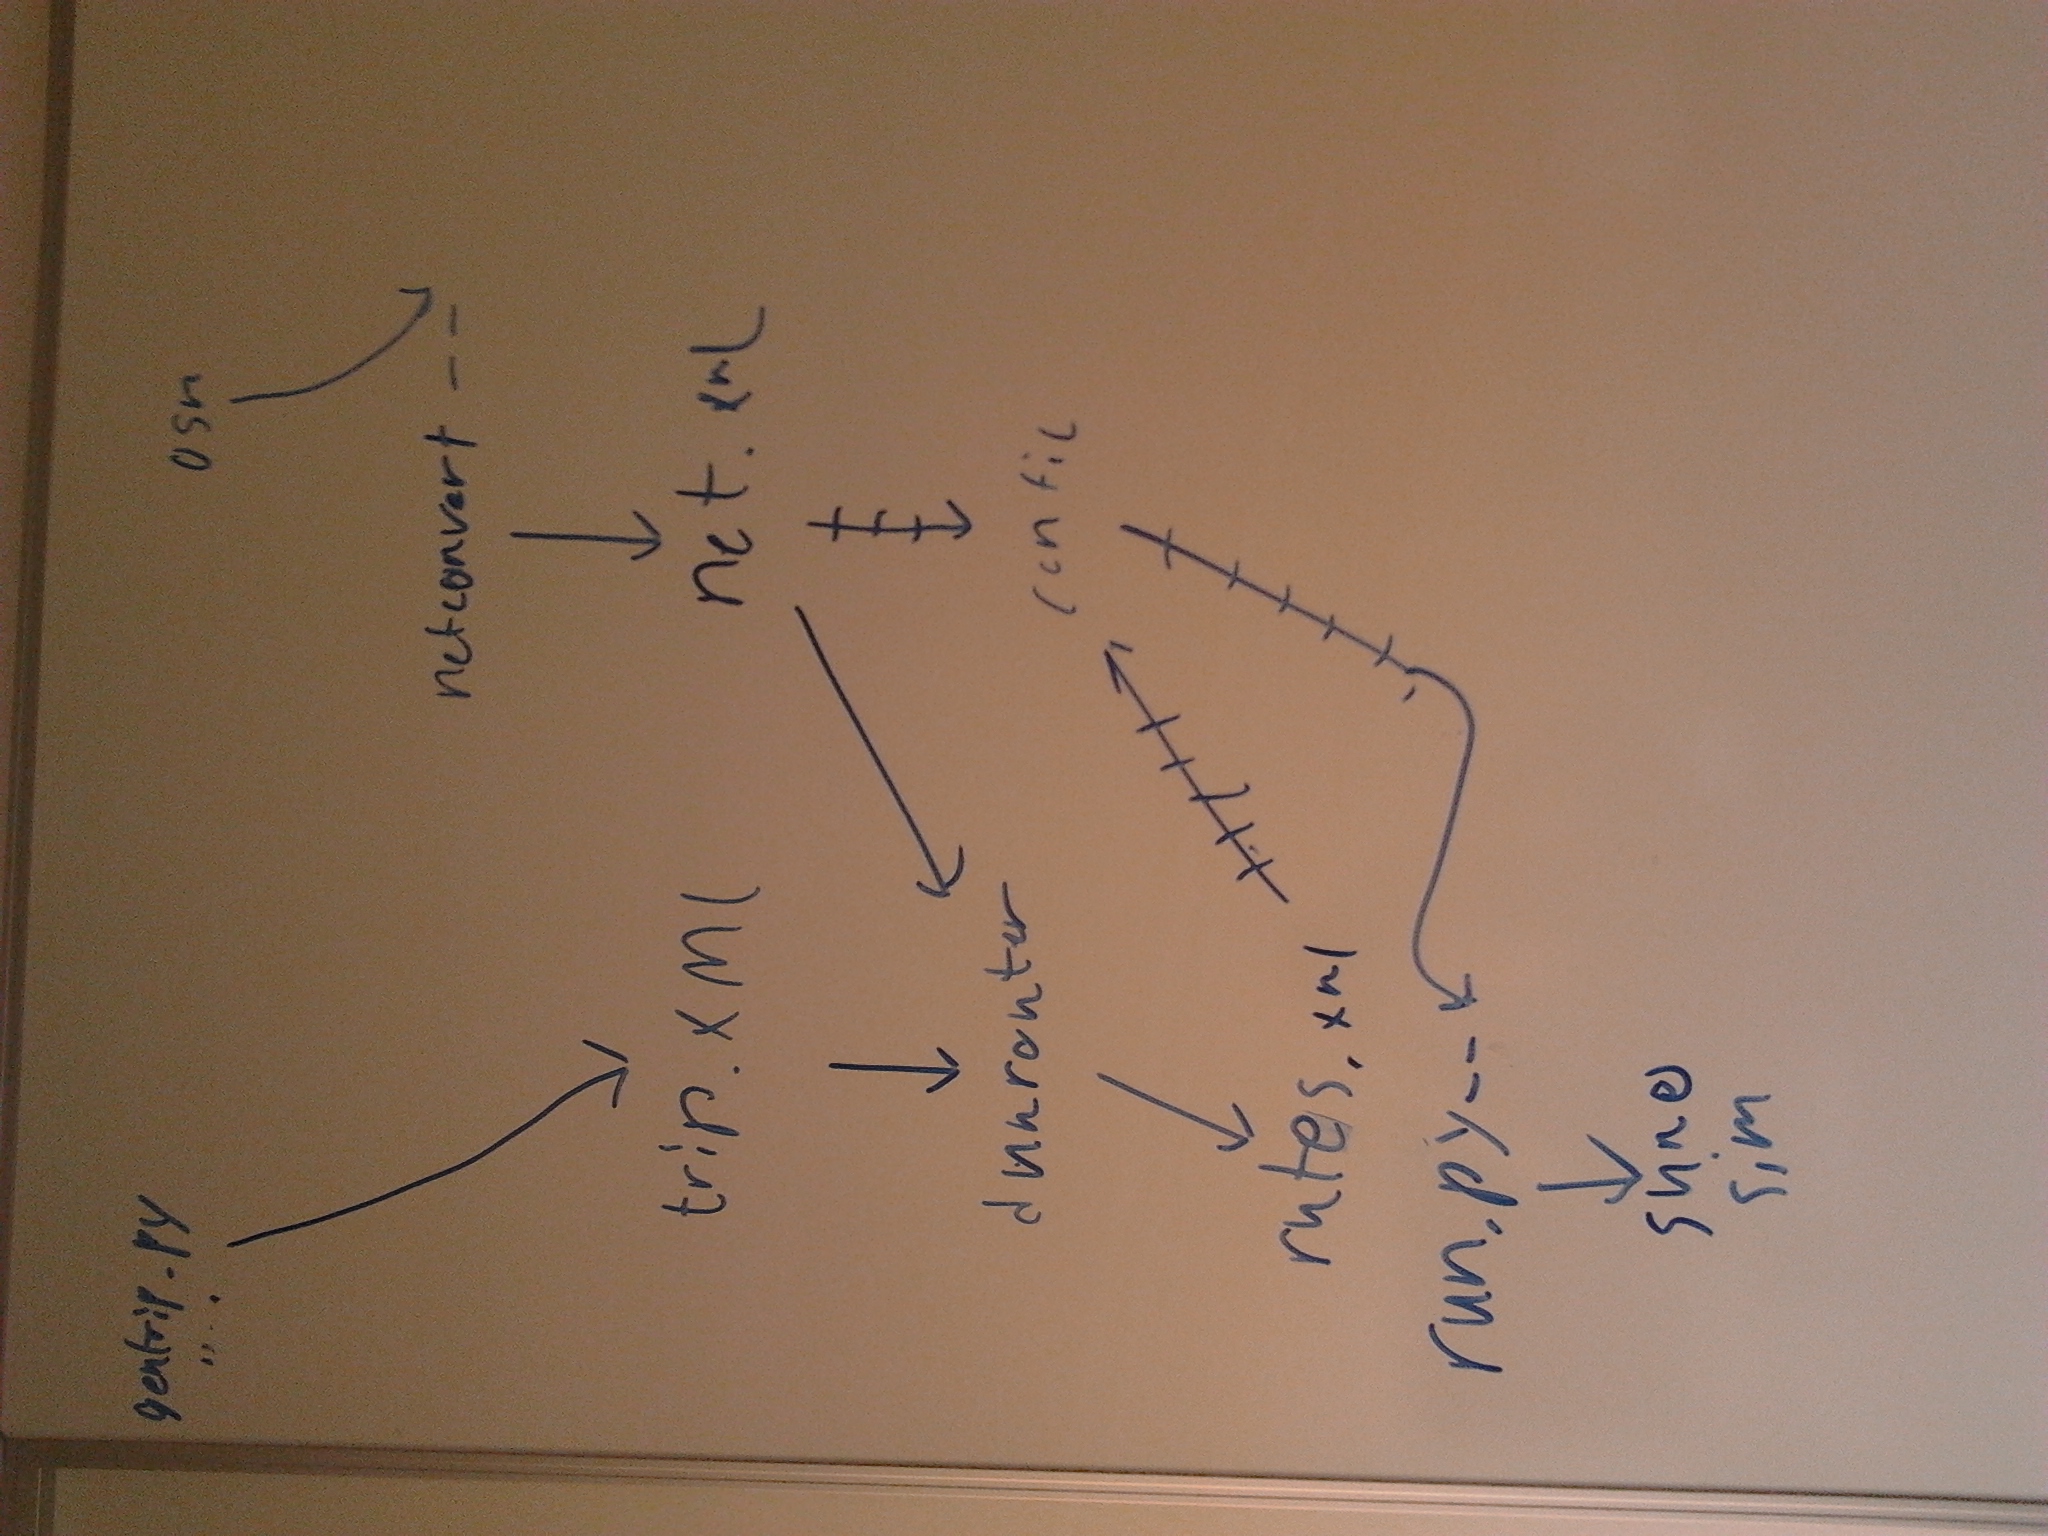 gentrip.py
osm
netconvert --
trip.xml
net.xml
duarouter
config
rutes.xml
run.py--
sumo
sim